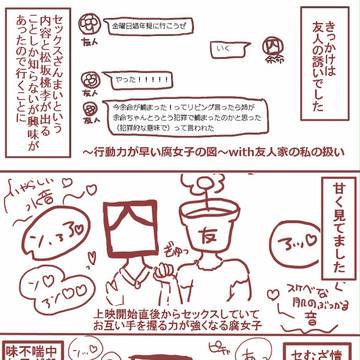 きっかけは
友人の誘いでした
友人
金曜日娼年見に行こうぜ
いく
余命
やった！！！！！
友人
今余命が捕まった！ってリビング言ったら姉が
余命ちゃんとうとう犯罪で捕まったのかと思った
（犯罪的な意味で）って言われた
セックスざんまいという
内容と松坂桃李が出る
ことしか知らないが興味が
あったので行くことに
〜行動力が早い腐女子の図〜with友人家の私の扱い
甘く見てました
いやらしい
水音
友
ぎゅっ
スケベな
肌のぶつかる
音
上映開始直後からセックスしていて
お互い手を握る力が強くなる腐女子
セむざ情
味不中喘